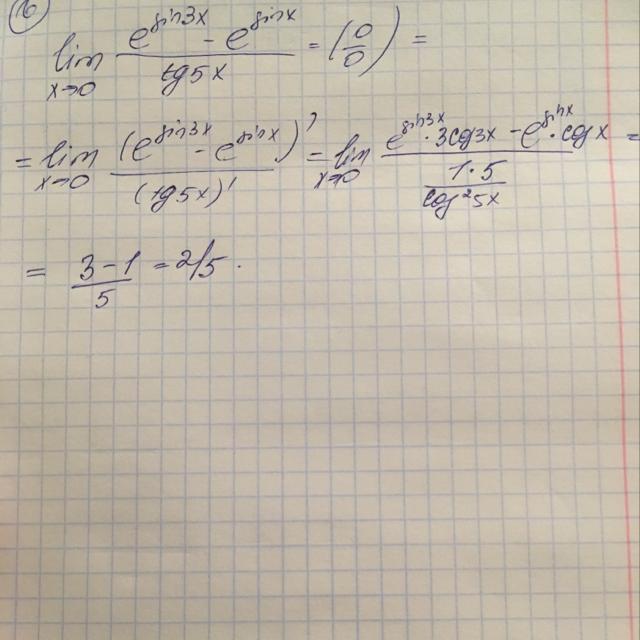 16
lim x→0 (e^sin3x − e^sinx)/(tg5x) = (0/0) =
= lim x→0 (e^sin3x − e^sinx)'/(tg5x)' = lim x→0 (e^sin3x · 3cos3x − e^sinx · cosx)/(1·5/cos²5x) =
= (3−1)/5 = 2/5.